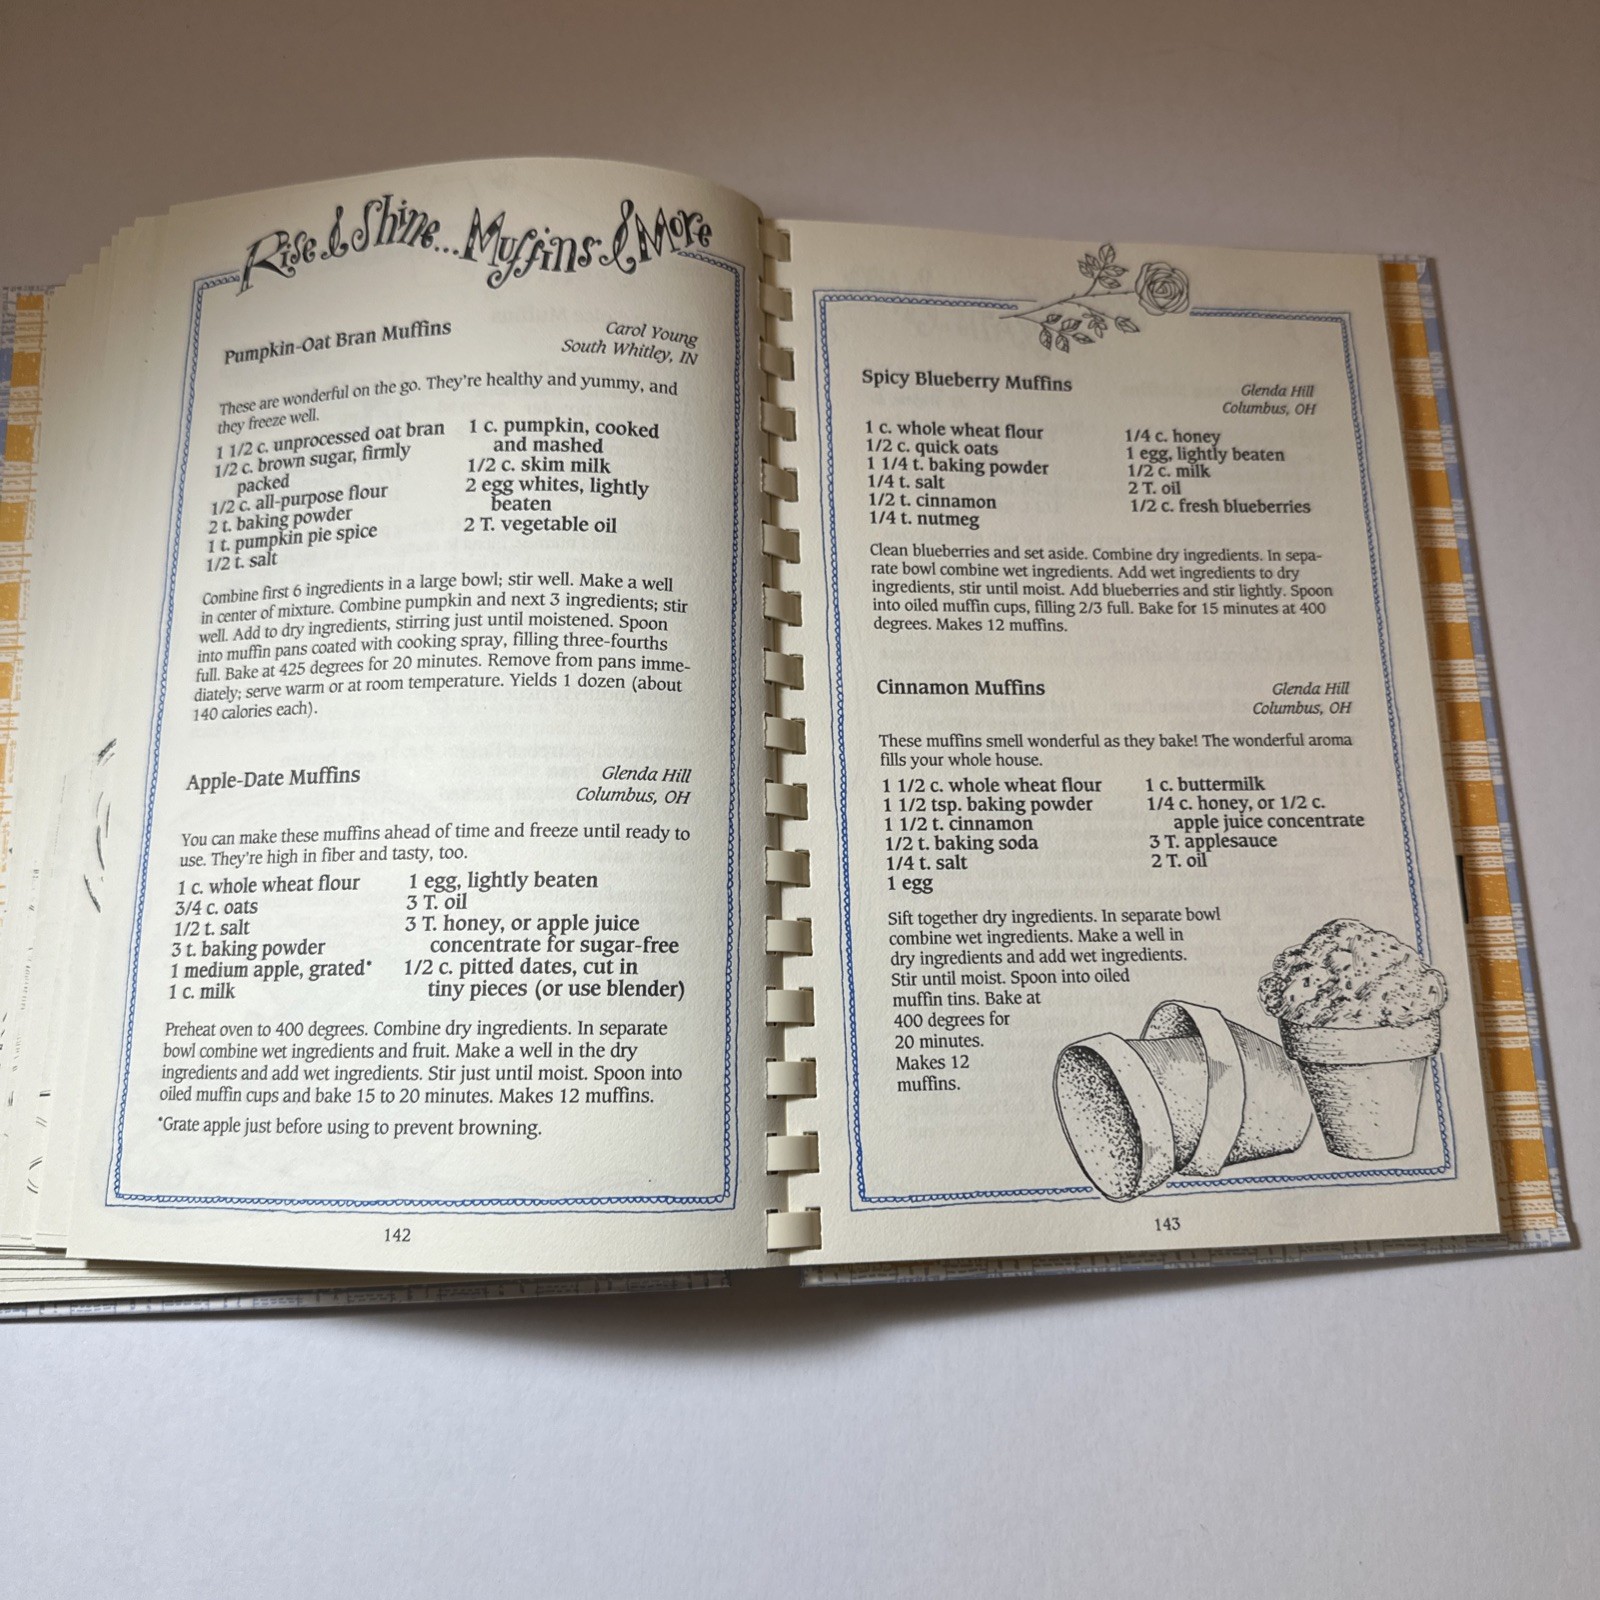 Rise & Shine...Muffins & More
Pumpkin-Oat Bran Muffins
Carol Young
South Whitley, IN
These are wonderful on the go. They're healthy and yummy, and
they freeze well.
1 1/2 c. unprocessed oat bran
1/2 c. brown sugar, firmly
packed
1/2 c. all-purpose flour
2 t. baking powder
1 t. pumpkin pie spice
1/2 t. salt
1 c. pumpkin, cooked
and mashed
1/2 c. skim milk
2 egg whites, lightly
beaten
2 T. vegetable oil
Combine first 6 ingredients in a large bowl; stir well. Make a well
in center of mixture. Combine pumpkin and next 3 ingredients; stir
well. Add to dry ingredients, stirring just until moistened. Spoon
into muffin pans coated with cooking spray, filling three-fourths
full. Bake at 425 degrees for 20 minutes. Remove from pans imme-
diately; serve warm or at room temperature. Yields 1 dozen (about
140 calories each).
Apple-Date Muffins
Glenda Hill
Columbus, OH
You can make these muffins ahead of time and freeze until ready to
use. They're high in fiber and tasty, too.
1 c. whole wheat flour
3/4 c. oats
1/2 t. salt
3 t. baking powder
1 medium apple, grated*
1 c. milk
1 egg, lightly beaten
3 T. oil
3 T. honey, or apple juice
concentrate for sugar-free
1/2 c. pitted dates, cut in
tiny pieces (or use blender)
Preheat oven to 400 degrees. Combine dry ingredients. In separate
bowl combine wet ingredients and fruit. Make a well in the dry
ingredients and add wet ingredients. Stir just until moist. Spoon into
oiled muffin cups and bake 15 to 20 minutes. Makes 12 muffins.
*Grate apple just before using to prevent browning.
142
Spicy Blueberry Muffins
Glenda Hill
Columbus, OH
1 c. whole wheat flour
1/2 c. quick oats
1 1/4 t. baking powder
1/4 t. salt
1/2 t. cinnamon
1/4 t. nutmeg
1/4 c. honey
1 egg, lightly beaten
1/2 c. milk
2 T. oil
1/2 c. fresh blueberries
Clean blueberries and set aside. Combine dry ingredients. In sepa-
rate bowl combine wet ingredients. Add wet ingredients to dry
ingredients, stir until moist. Add blueberries and stir lightly. Spoon
into oiled muffin cups, filling 2/3 full. Bake for 15 minutes at 400
degrees. Makes 12 muffins.
Cinnamon Muffins
Glenda Hill
Columbus, OH
These muffins smell wonderful as they bake! The wonderful aroma
fills your whole house.
1 1/2 c. whole wheat flour
1 1/2 tsp. baking powder
1 1/2 t. cinnamon
1/2 t. baking soda
1/4 t. salt
1 egg
1 c. buttermilk
1/4 c. honey, or 1/2 c.
apple juice concentrate
3 T. applesauce
2 T. oil
Sift together dry ingredients. In separate bowl
combine wet ingredients. Make a well in
dry ingredients and add wet ingredients.
Stir until moist. Spoon into oiled
muffin tins. Bake at
400 degrees for
20 minutes.
Makes 12
muffins.
143